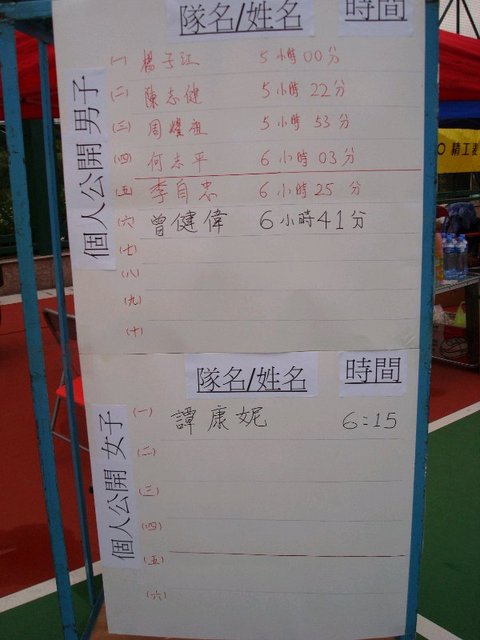 隊名/姓名 時間
個人公開 男子
(一) 楊子江 5小時00分
(二) 陳志健 5小時22分
(三) 周燦祖 5小時53分
(四) 何志平 6小時03分
(五) 李自忠 6小時25分
(六) 曾健偉 6小時41分
(七)
(八)
(九)
(十)
隊名/姓名 時間
個人公開 女子
(一) 譚康妮 6:15
(二)
(三)
(四)
(五)
(六)
精工